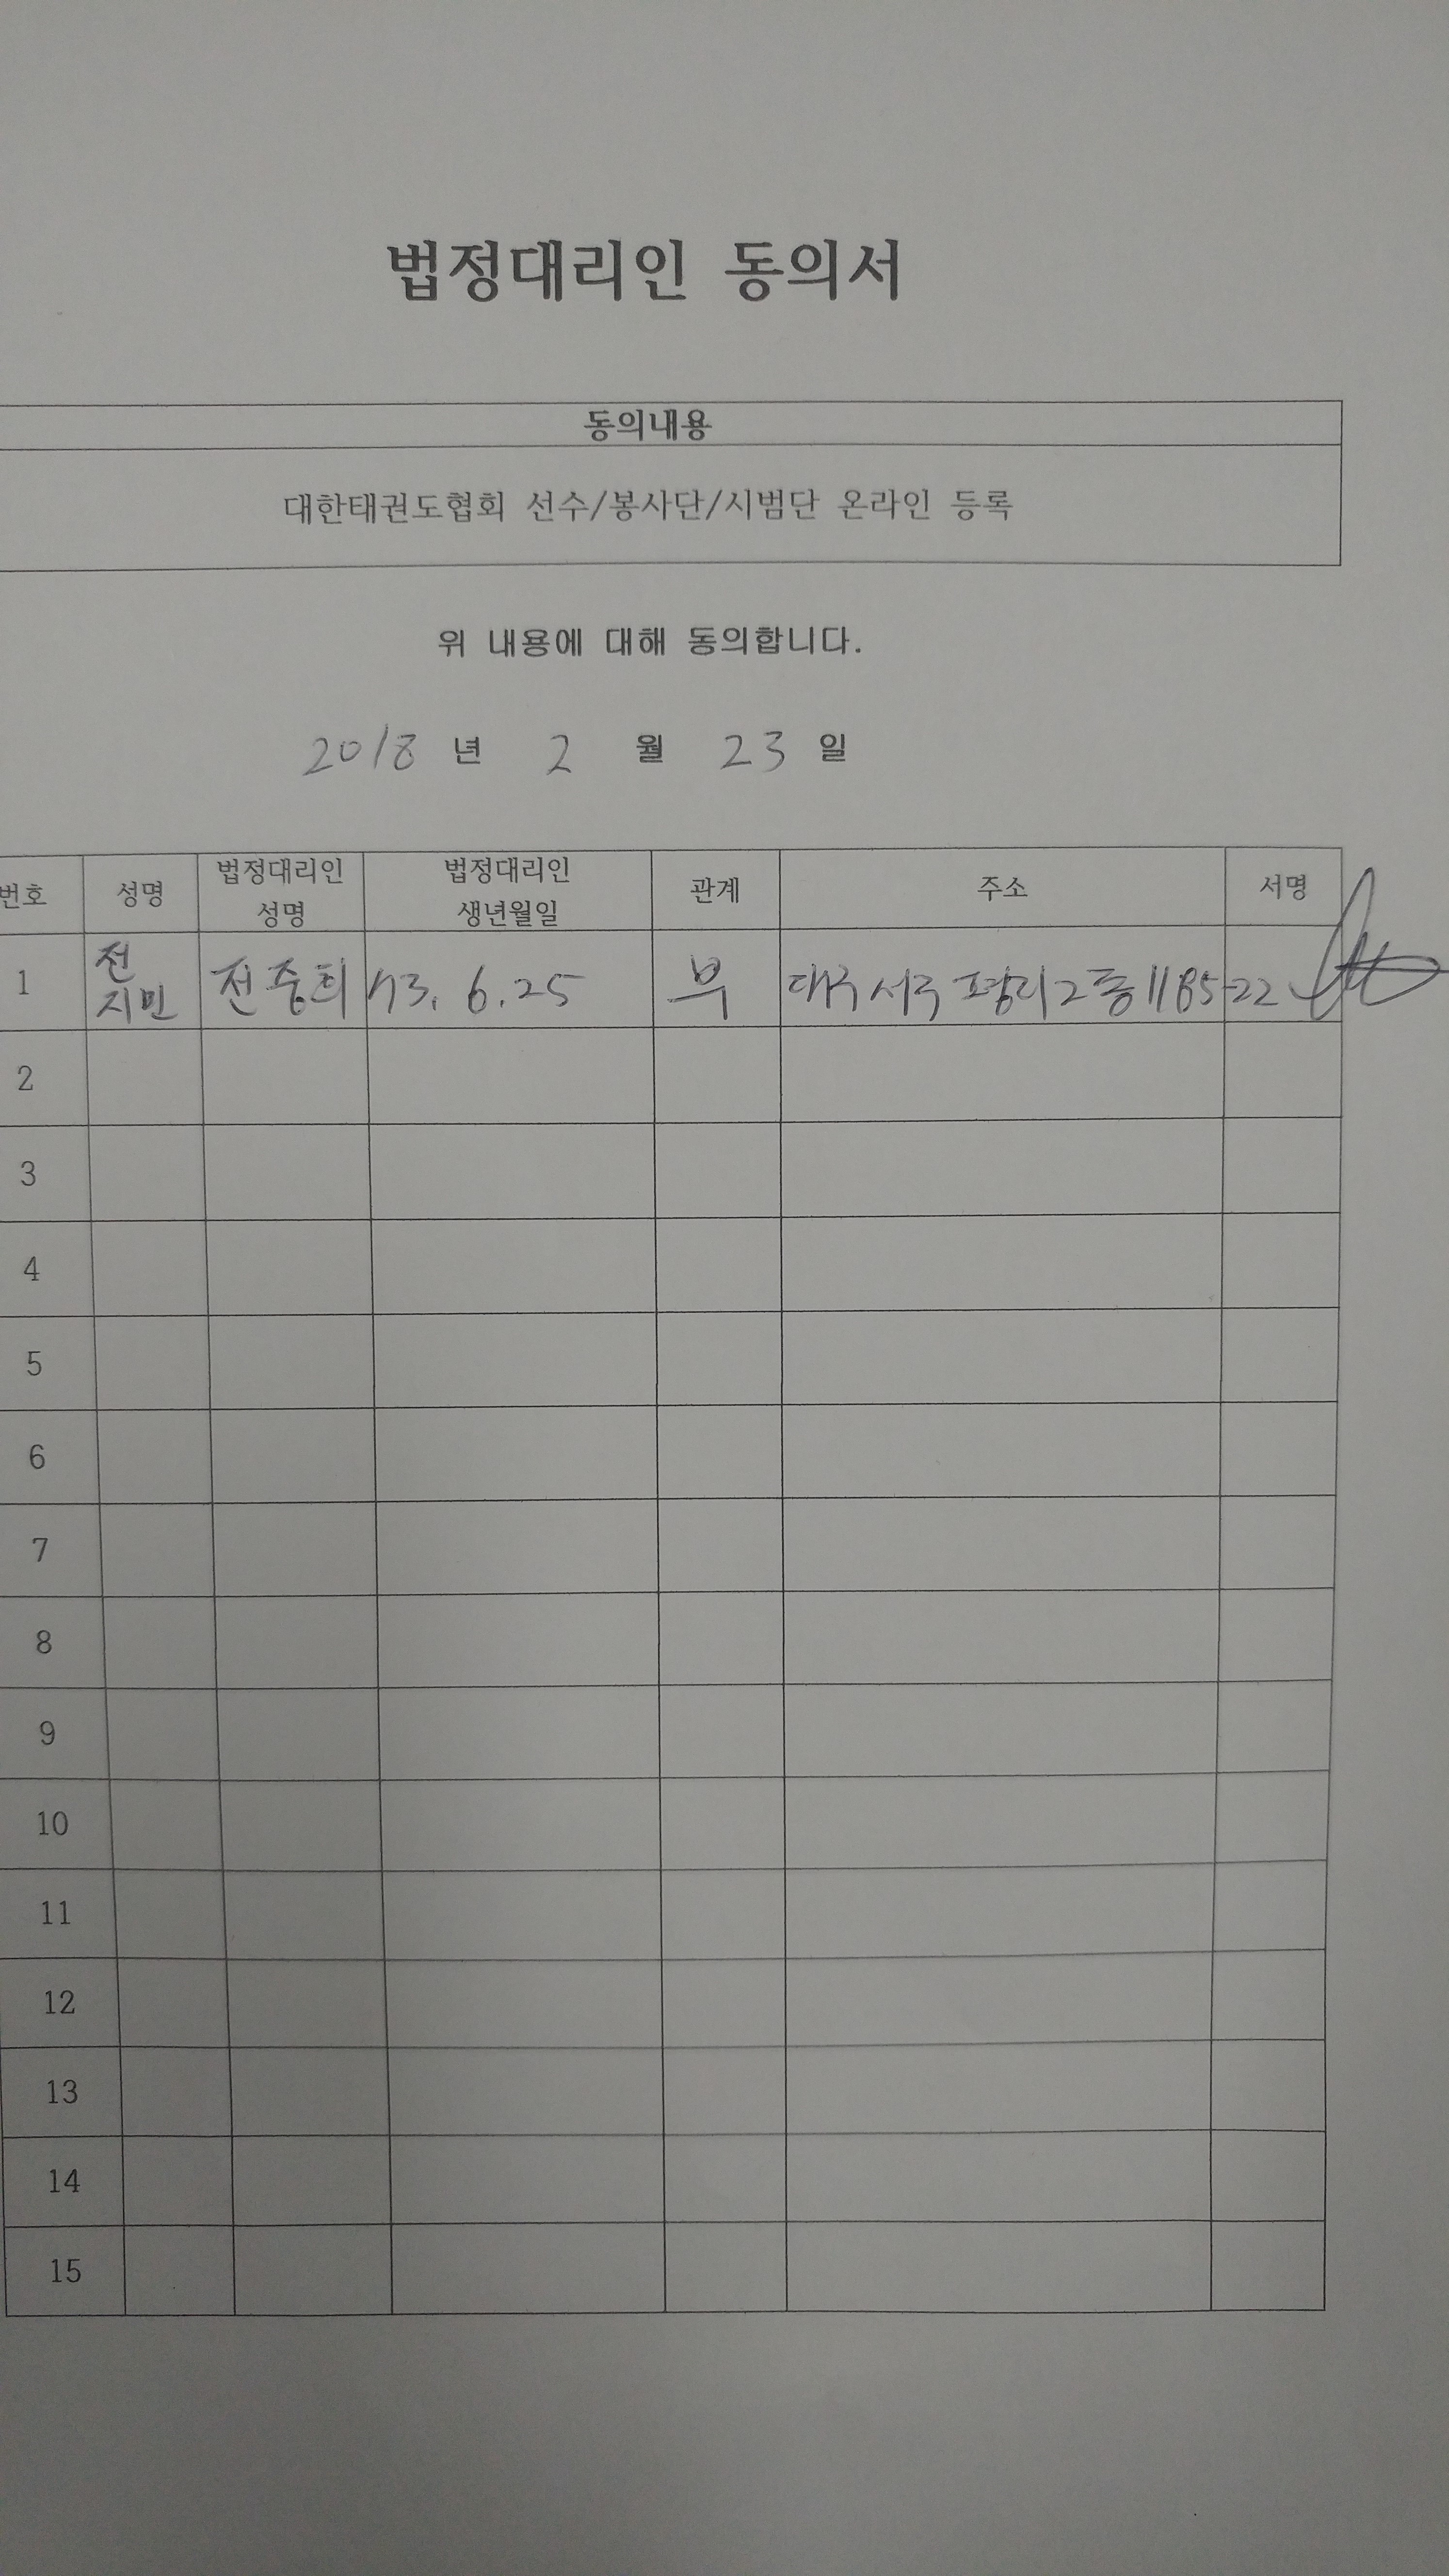 법정대리인 동의서
동의내용
대한태권도협회 선수/봉사단/시범단 온라인 등록
위 내용에 대해 동의합니다.
2018 년 2 월 23 일
번호 성명 법정대리인 성명 법정대리인 생년월일 관계 주소 서명
1 전지민 전중희 73. 6. 25 부 대구 서구 평리2동 1185-22
2
3
4
5
6
7
8
9
10
11
12
13
14
15